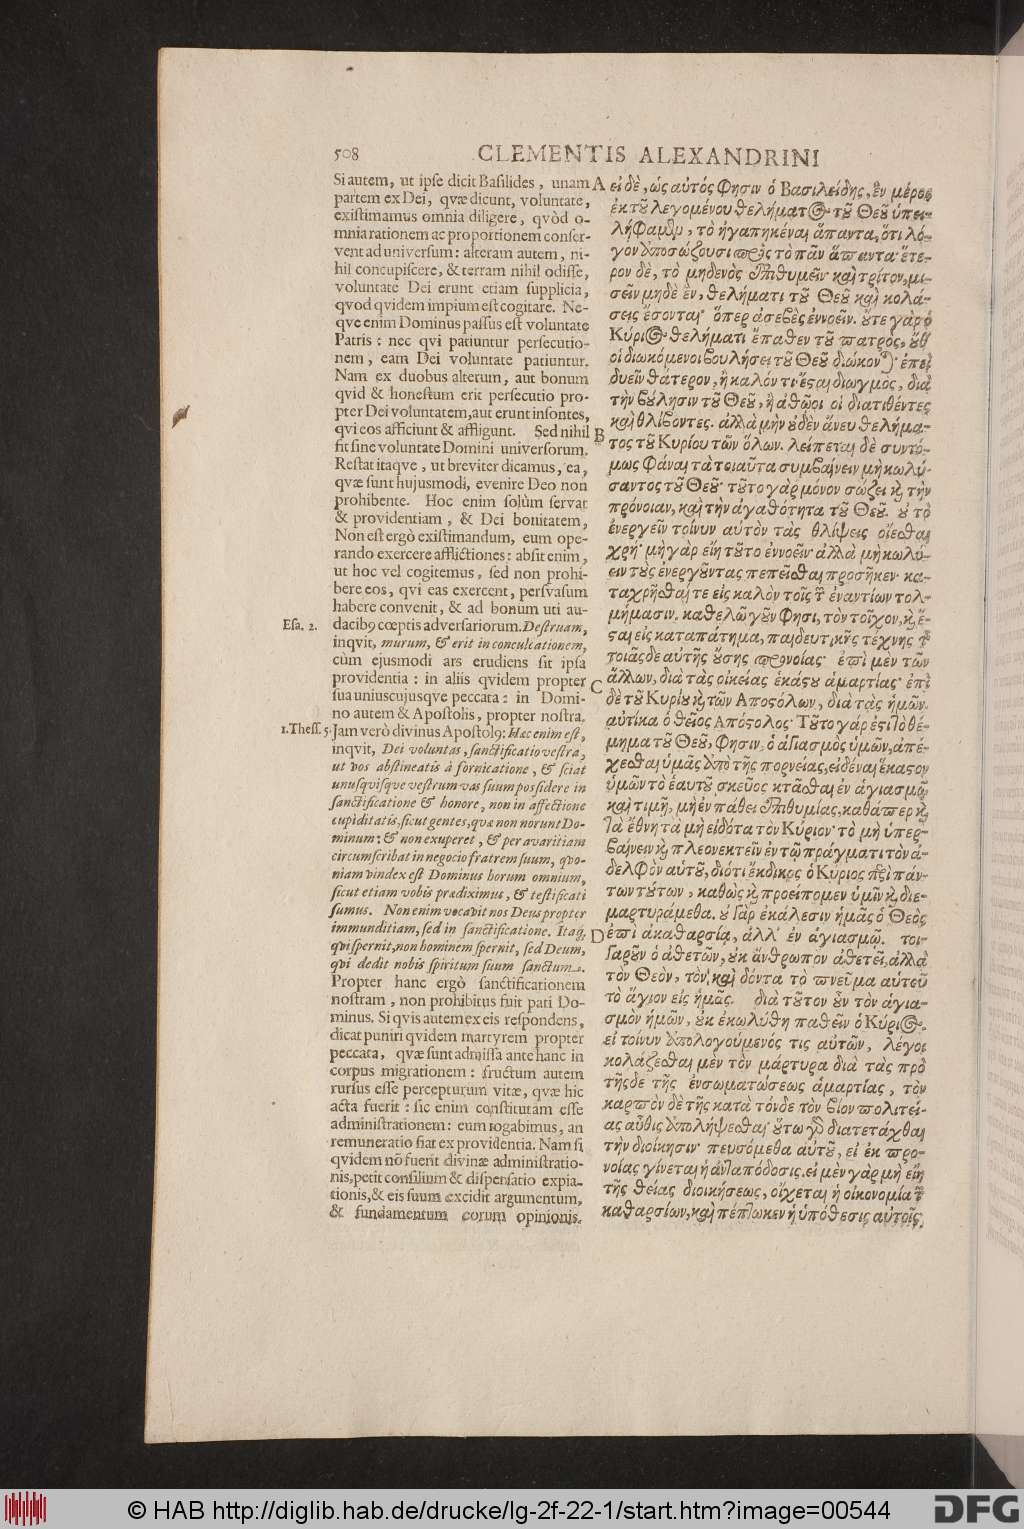 508
CLEMENTIS ALEXANDRINI
Si autem, ut ipse dicit Basilides, unam
partem ex Dei, quæ dicunt, voluntate,
existimamus omnia diligere, quòd o-
mnia rationem ac proportionem conser-
vent ad universum: alteram autem, ni-
hil concupiscere, & terram nihil odisse,
voluntate Dei erunt etiam supplicia,
qvod qvidem impium est cogitare. Ne-
qve enim Dominus passus est voluntate
Patris: nec qvi patiuntur persecutio-
nem, eam Dei voluntate patiuntur.
Nam ex duobus alterum, aut bonum
qvid & honestum erit persecutio pro-
pter Dei voluntatem, aut erunt insontes,
qvi eos afficiunt & affligunt. Sed nihil
fit sine voluntate Domini universorum.
Restat itaqve, ut breviter dicamus, ea,
qvæ sunt hujusmodi, evenire Deo non
prohibente. Hoc enim solùm servat
& providentiam, & Dei bonitatem,
Non est ergò existimandum, eum ope-
rando exercere afflictiones: absit enim,
ut hoc vel cogitemus, sed non prohi-
bere eos, qvi eas exercent, persvasum
habere convenit, & ad bonum uti au-
Esa. 2. dacib9 cœptis adversariorum. Destruam,
inqvit, murum, & erit in conculcationem,
cùm ejusmodi ars erudiens sit ipsa
providentia: in aliis qvidem propter
sua uniuscujusqve peccata: in Domi-
no autem & Apostolis, propter nostra.
1. Thess. 5. Jam verò divinus Apostol9: Hæc enim est,
inqvit, Dei voluntas, sanctificatio vestra,
ut vos abstineatis à fornicatione, & sciat
unusqvisqve vestrum vas suum possidere in
sanctificatione & honore, non in affectione
cupiditatis, sicut gentes, qvæ non norunt Do-
minum: & non exuperet, & per avaritiam
circumscribat in negocio fratrem suum, qvo-
niam vindex est Dominus horum omnium,
sicut etiam vobis prædiximus, & testificati
sumus. Non enim vocavit nos Deus propter
immunditiam, sed in sanctificatione. Itaq;
qvi spernit, non hominem spernit, sed Deum,
qvi dedit nobis spiritum suum sanctum.
Propter hanc ergò sanctificationem
nostram, non prohibitus fuit pati Do-
minus. Si qvis autem ex eis respondens,
dicat puniri qvidem martyrem propter
peccata, qvæ sunt admissa ante hanc in
corpus migrationem: fructum autem
rursus esse percepturum vitæ, qvæ hic
acta fuerit: sic enim constitutam esse
administrationem: eum rogabimus, an
remuneratio fiat ex providentia. Nam si
qvidem nō fuerit divinæ administratio-
nis, petit consilium & dispensatio expia-
tionis, & eis suum excidit argumentum,
& fundamentum eorum opinionis.
A εἰ δὲ, ὡς αὐτός φησιν ὁ Βασιλείδης, ἓν μέρος
ἐκ τȣ͂ λεγομένου θελήματος τȣ͂ Θεȣ͂ ὑπει-
λήφαμεν, τὸ ἠγαπηκέναι ἅπαντα, ὅτι λό-
γον ἀποσώζουσι πρὸς τὸ πᾶν ἅπαντα· ἕτε-
ρον δὲ, τὸ μηδενὸς ἐπιθυμεῖν· καὶ τρίτον, μι-
σεῖν μηδὲ ἓν, θελήματι τȣ͂ Θεȣ͂ καὶ κολά-
σεις ἔσονται· ὅπερ ἀσεβὲς ἐννοεῖν. ȣ̓́τε γὰρ ὁ
Κύριος θελήματι ἔπαθεν τȣ͂ πατρὸς, ȣ̓́θ'
οἱ διωκόμενοι βουλήσει τȣ͂ Θεȣ͂ διώκον)· ἐπεὶ
δυεῖν θάτερον, ἢ καλόν τι ἔσται διωγμὸς, διὰ
τὴν βȣ́λησιν τȣ͂ Θεȣ͂, ἢ ἀθῷοι οἱ διατιθέντες
καὶ θλίβοντες. ἀλλὰ μὴν ȣ̓δὲν ἄνευ θελήμα-
B τος τȣ͂ Κυρίου τῶν ὅλων. λείπεται δὲ συντό-
μως φάναι τὰ τοιαῦτα συμβαίνειν μὴ κωλύ-
σαντος τȣ͂ Θεȣ͂· τȣ͂το γὰρ μόνον σώζει κ̣ τὴν
πρόνοιαν, καὶ τὴν ἀγαθότητα τȣ͂ Θεȣ͂. ȣ̓ τὸ
ἐνεργεῖν τοίνυν αὐτὸν τὰς θλίψεις οἴεσθαι
χρή· μὴ γὰρ εἴη τȣ͂το ἐννοεῖν· ἀλλὰ μὴ κωλύ-
ειν τȣ̀ς ἐνεργȣ͂ντας πεπεῖσθαι προσῆκεν· κα-
ταχρῆσθαί τε εἰς καλὸν τοῖς τ̃ ἐναντίων τολ-
μήμασιν. καθελῶ γȣ͂ν φησι, τὸν τοῖχον, κ̣ ἔ-
σται εἰς καταπάτημα, παιδευτικῆς τέχνης τ̃
τοιᾶσδε αὐτῆς ȣ̓́σης προνοίας· ἐπὶ μὲν τῶν
C ἄλλων, διὰ τὰς οἰκείας ἑκάστȣ ἁμαρτίας· ἐπὶ
δὲ τȣ͂ Κυρίȣ κ̣ τῶν Αποστόλων, διὰ τὰς ἡμῶν.
αὐτίκα ὁ θεῖος Απόστολος· Τȣ͂το γάρ ἐστι τὸ θέ-
λημα τȣ͂ Θεȣ͂, φησιν, ὁ ἁγιασμὸς ὑμῶν, ἀπέ-
χεσθαι ὑμᾶς ἀπὸ τῆς πορνείας, εἰδέναι ἕκαστον
ὑμῶν τὸ ἑαυτȣ͂ σκεῦος κτᾶσθαι ἐν ἁγιασμῷ
καὶ τιμῇ, μὴ ἐν πάθει ἐπιθυμίας, καθάπερ κ̣
τὰ ἔθνη τὰ μὴ εἰδότα τὸν Κύριον· τὸ μὴ ὑπερ-
βαίνειν κ̣ πλεονεκτεῖν ἐν τῷ πράγματι τὸν ἀ-
δελφὸν αὑτȣ͂, διότι ἔκδικος ὁ Κύριος περὶ πάν-
των τȣ́των, καθὼς κ̣ προείπομεν ὑμῖν κ̣ διε-
μαρτυράμεθα. ȣ̓ γὰρ ἐκάλεσιν ἡμᾶς ὁ Θεὸς
D ἐπὶ ἀκαθαρσίᾳ, ἀλλ' ἐν ἁγιασμῷ. τοι-
γαρȣ͂ν ὁ ἀθετῶν, ȣ̓κ ἄνθρωπον ἀθετεῖ, ἀλλὰ
τὸν Θεὸν, τὸν καὶ δόντα τὸ πνεῦμα αὑτȣ͂
τὸ ἅγιον εἰς ἡμᾶς. διὰ τȣ͂τον ȣ̓͂ν τὸν ἁγια-
σμὸν ἡμῶν, ȣ̓κ ἐκωλύθη παθεῖν ὁ Κύριος.
εἰ τοίνυν ἀπολογούμενός τις αὐτῶν, λέγοι
κολάζεσθαι μὲν τὸν μάρτυρα διὰ τὰς πρὸ
τῆσδε τῆς ἐνσωματώσεως ἁμαρτίας, τὸν
καρπὸν δὲ τῆς κατὰ τόνδε τὸν βίον πολιτεί-
ας αὖθις ἀπολήψεσθαι· ȣ̔́τω γὰρ διατετάχθαι
τὴν διοίκησιν· πευσόμεθα αὐτȣ͂, εἰ ἐκ προ-
νοίας γίνεται ἡ ἀνταπόδοσις. εἰ μὲν γὰρ μὴ εἴη
τῆς θείας διοικήσεως, οἴχεται ἡ οἰκονομία τ̃
καθαρσίων, καὶ πέπτωκεν ἡ ὑπόθεσις αὐτοῖς.
© HAB http://diglib.hab.de/drucke/lg-2f-22-1/start.htm?image=00544
DFG